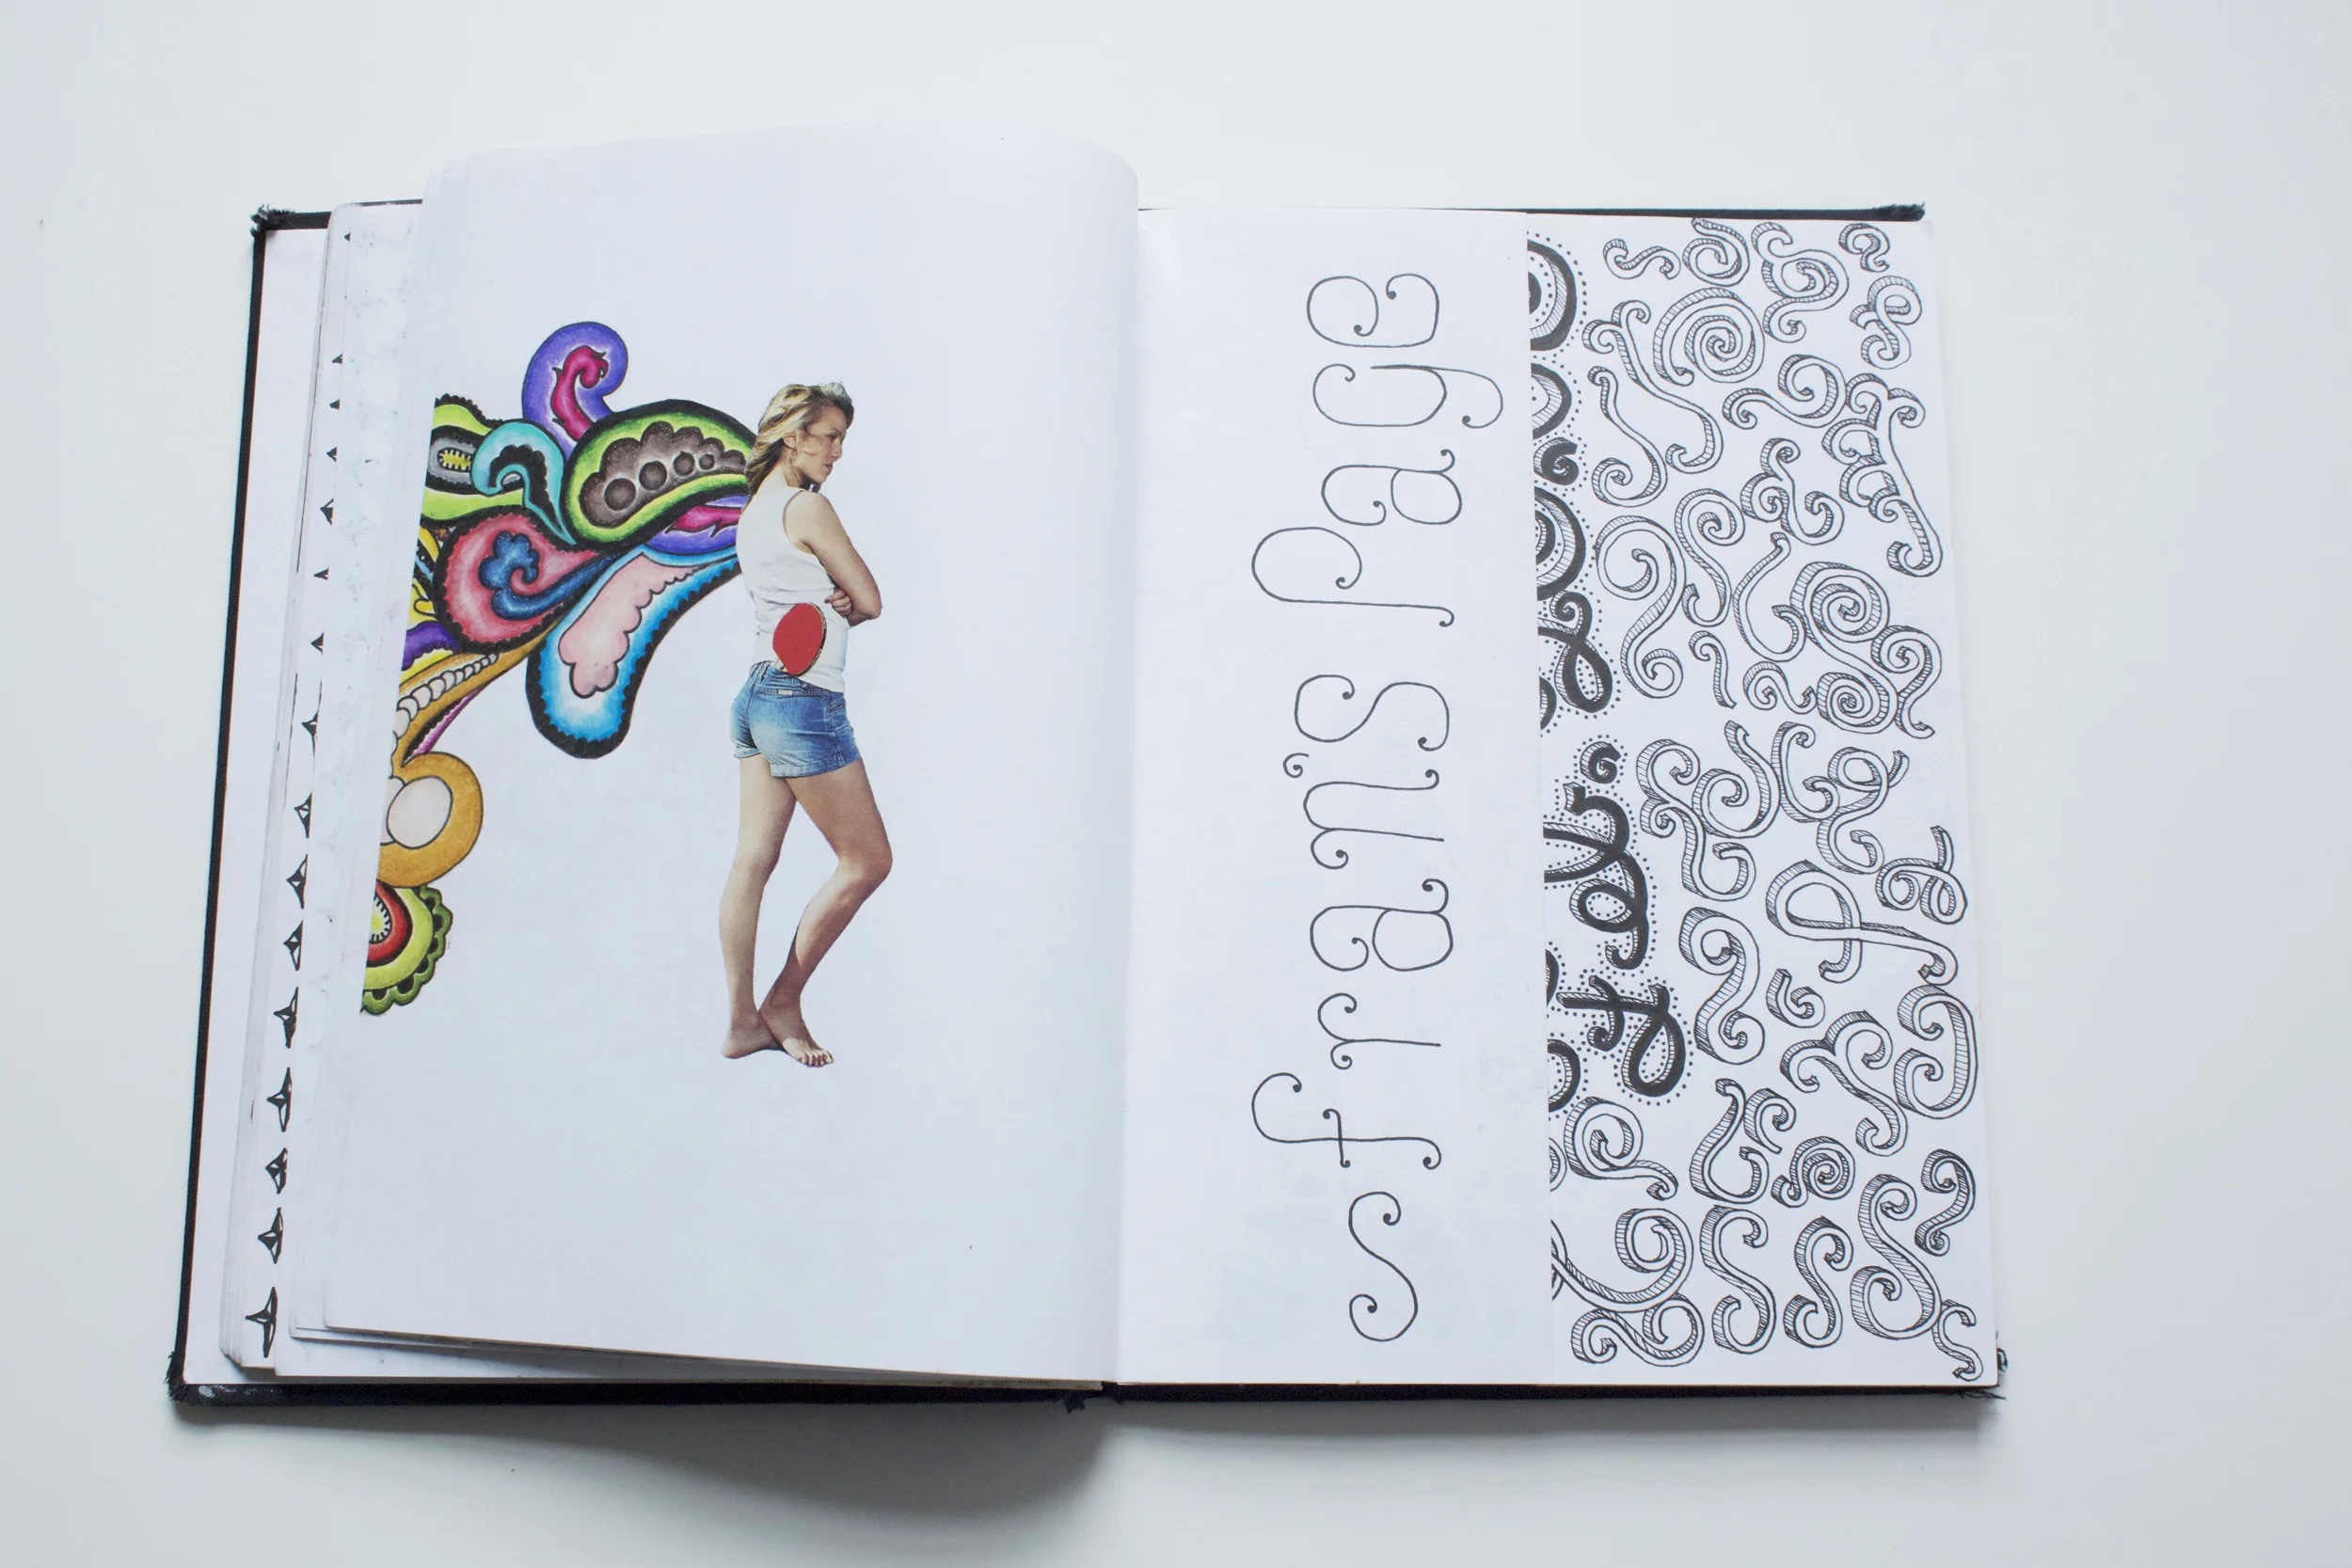 fran's Page